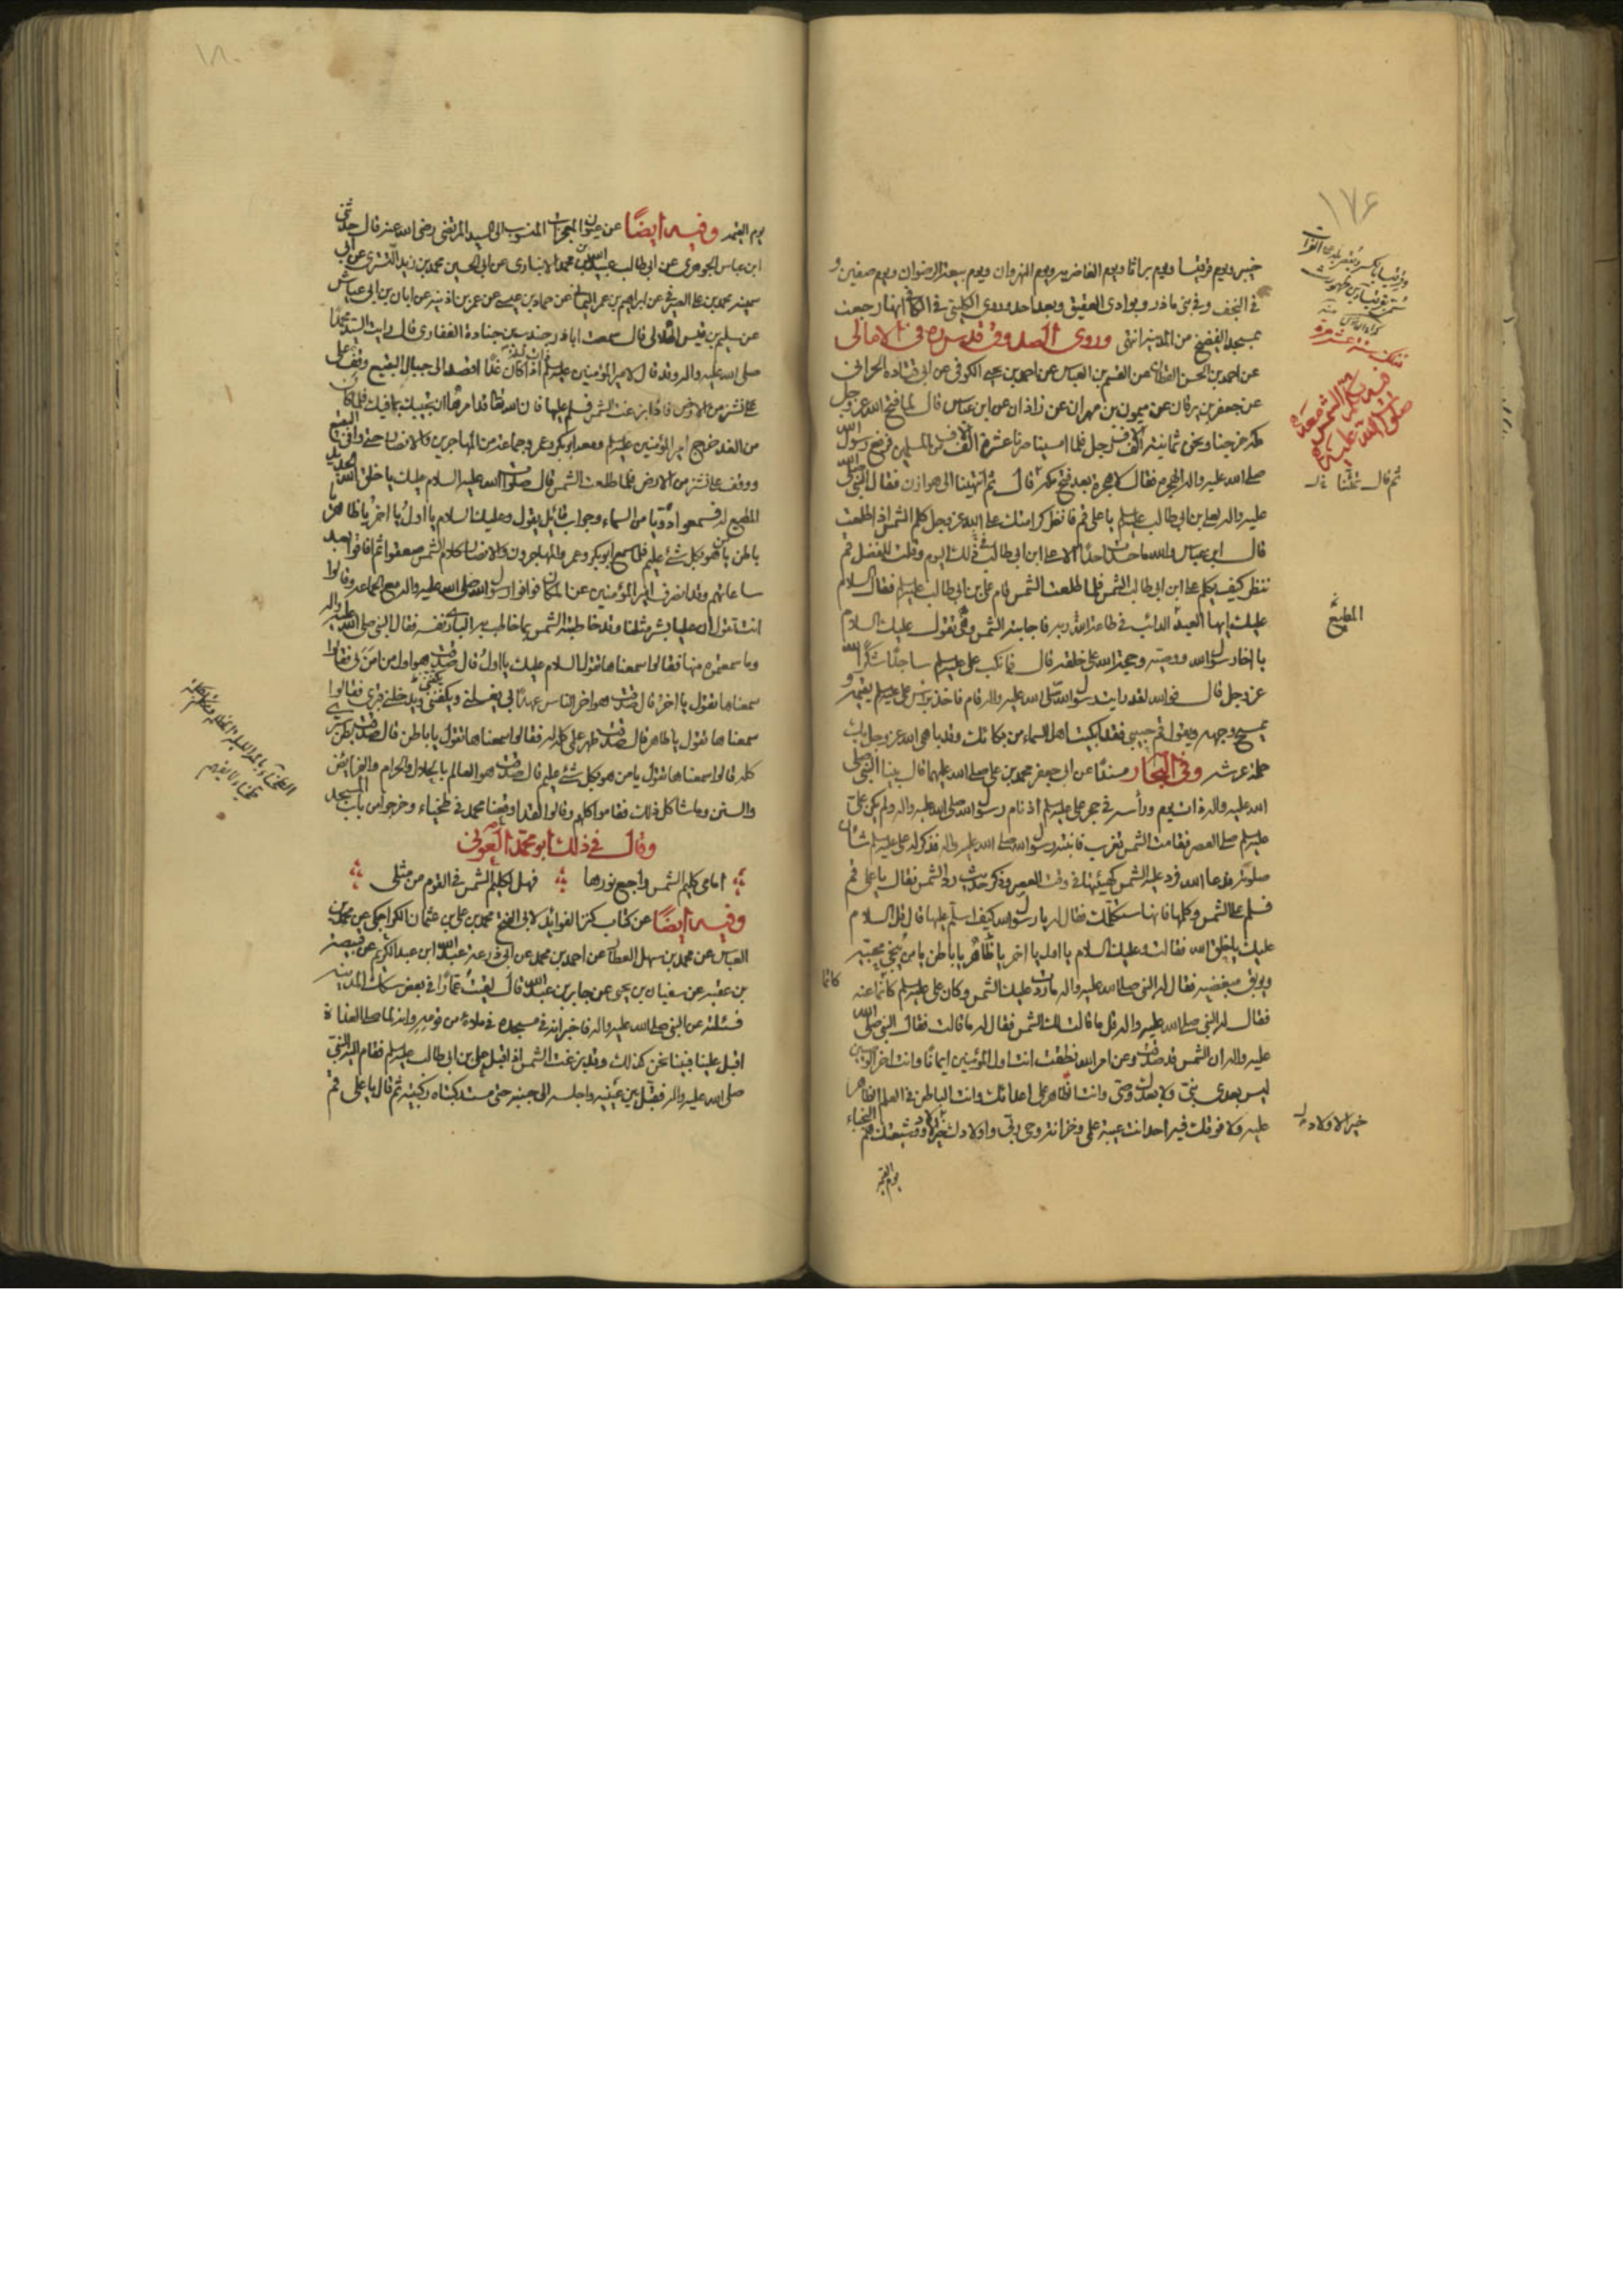 ١٧۶
خيبر ويوم قرقيسا ويوم براثا ويوم الغاضرية ويوم النهروان ويوم بيعة الرضوان ويوم صفين و
في النجف وفي بني ماذر وبوادي العقيق وبعد احد وروى الكليني في الكافي انها رجعت
بمسجد الفضيخ من المدينة انتهى وروى الصدوق قدس سره في الامالي
عن احمد بن الحسن القطان عن القسم بن العباس عن احمد بن يحيى الكوفي عن ابي قتادة الحراني
عن جعفر بن برقان عن ميمون بن مهران عن زاذان عن ابن عباس قال لما فتح الله عز وجل
مكة خرجنا ونحن ثمانية الف رجل فلما امسينا صرنا عشرة الف من المسلمين فرفع رسول الله
صلى الله عليه واله الهجرة فقال لا هجرة بعد فتح مكة قال ثم انتهينا الى هوازن فقال النبي صلى الله
عليه واله لعلي بن ابي طالب عليه السلم يا علي قم فانظر كرامتك على الله عز وجل كلم الشمس اذا طلعت
قال ابن عباس والله ما حسدت احدا الا علي ابن ابي طالب في ذلك اليوم وقلت للفضل قم
ننظر كيف يكلم علي ابن ابي طالب الشمس فلما طلعت الشمس قام علي بن ابي طالب عليه السلم فقال السلام
عليك ايها العبد الدائب في طاعة الله ربه فاجابته الشمس وهي تقول عليك السلام
يا اخا رسول الله ووصيه وحجة الله على خلقه قال فانكب علي عليه السلم ساجدا شكرا لله
عز وجل قال فوالله لقد رايت رسول الله صلى الله عليه واله قام فاخذ براس علي عليه السلم يقيمه و
يمسح وجهه ويقول قم حبيبي فقد ابكيت اهل السماء من بكائك وقد باهى الله عز وجل بك
حملة عرشه وفي البحار مسندا عن ابي جعفر محمد بن علي صلى الله عليهما قال بينا النبي صلى
الله عليه واله ذات يوم وراسه في حجر علي عليه السلم اذ نام رسول الله صلى الله عليه واله ولم يكن علي
عليه السلم صلى العصر فقامت الشمس تغرب فانتبه رسول الله صلى الله عليه واله فذكر له علي عليه السلم شان
صلوته فدعا الله فرد عليه الشمس كهيئتها في وقت العصر وذكر حديث رد الشمس فقال يا علي قم
فسلم على الشمس وكلمها فانها ستكلمك فقال له يا رسول الله كيف اسلم عليها قال قل السلام
عليك يا خلق الله فقالت وعليك السلام يا اول يا اخر يا ظاهر يا باطن يا من ينجي محبيه
ويوبق مبغضيه فقال له النبي صلى الله عليه واله ما ردت عليك الشمس وكان علي عليه السلم كاتما عنه
فقال له النبي صلى الله عليه واله قل ما قالت لك الشمس فقال له ما قالت فقال النبي صلى الله
عليه واله ان الشمس قد صدقت وعن امر الله نطقت انت اول المؤمنين ايمانا وانت اخر الوصيين
ليس بعدي نبي ولا بعدك وصي وانت الظاهر على اعدائك وانت الباطن في العلم الظاهر
عليه ولا فوقك فيه احد انت عيبة علمي وخزانة وحي ربي واولادك خير الاولاد وشيعتك هم النجباء
يوم القيمة
ثم قال قلنا
المطيع
كاتما
خير الاولاد
١٨٠
يوم القيمة وفيه ايضا عن عيون المعجزات المنسوب الى السيد المرتضى رضي الله عنه قال حدثني
ابن عباس الجوهري عن ابي طالب عبيد الله بن محمد الانباري عن ابي الحسين محمد بن زيد التستري عن ابي
سمينة محمد بن علي الصيرفي عن ابراهيم بن عمر اليماني عن حماد بن عيسى عن عمر بن اذينة عن ابان بن ابي عياش
عن سليم بن قيس الهلالي قال سمعت ابا ذر جندب بن جنادة الغفاري قال رايت السيد محمدا
صلى الله عليه واله وقد قال لامير المؤمنين عليه السلم اذا كان غدا اقصد الى جبال البقيع وقف على
على نشز من الارض فاذا بزغت الشمس فسلم عليها فان الله تعالى قد امرها ان تجيبك بما فيك فلما كان
من الغد خرج امير المؤمنين عليه السلم ومعه ابو بكر وعمر وجماعة من المهاجرين والانصار حتى وافى البقيع
ووقف على نشز من الارض فلما طلعت الشمس قال صلوات الله عليه السلام عليك يا خلق الله الجديد
المطيع له فسمعوا دويا من السماء وجواب قائل يقول وعليك السلام يا اول يا اخر يا ظاهر يا
باطن يا من هو بكل شئ عليم فلما سمع ابو بكر وعمر والمهاجرون والانصار كلام الشمس صعقوا ثم افاقوا بعد
ساعاتهم وقد انصرف امير المؤمنين عن المكان فوافوا رسول الله صلى الله عليه واله مع الجماعة وقالوا
انت تقول ان عليا بشر مثلنا وقد خاطبته الشمس بما خاطب به الباري نفسه فقال النبي صلى الله عليه واله
وما سمعتموه منها فقالوا سمعناها تقول السلام عليك يا اول قال صدقت هو اول من امن بي فقالوا
سمعناها تقول يا اخر قال صدقت هو اخر الناس عهدا بي يغسلني ويكفنني ويدخلني قبري فقالوا
سمعناها تقول يا ظاهر قال صدقت ظهر علمي كله له فقالوا سمعناها تقول يا باطن قال صدقت بطن سري
كله قالوا سمعناها تقول يا من هو بكل شئ عليم قال صدقت هو العالم بالحلال والحرام والفرائض
والسنن وما شاكل ذلك فقاموا كلهم وقالوا لقد اوقعنا محمد في طخياء وخرجوا من باب المسجد
وقال في ذلك ابو محمد العوني
امامي كليم الشمس راجع نورها فهل لكليم الشمس في القوم من مثلي
وفيه ايضا عن كتاب كنز الفوائد لابي الفتح محمد بن علي بن عثمان الكراجكي عن محمد بن
العباس عن محمد بن سهل العطار عن احمد بن محمد عن ابي زرعة عبيد الله ابن عبد الكريم عن قبيصة
بن عقبة عن سفيان بن يحيى عن جابر بن عبد الله قال لقيت عمارا في بعض سكك المدينة
فسئلته عن النبي صلى الله عليه واله فاخبر انه في مسجده في ملاء من قومه وانه لما صلى الغداة
اقبل علينا فبينا نحن كذلك وقد بزغت الشمس اذ اقبل علي بن ابي طالب عليه السلم فقام اليه النبي
صلى الله عليه واله فقبل بين عينيه واجلسه الى جنبه حتى مست ركبتاه ركبتيه ثم قال يا علي قم